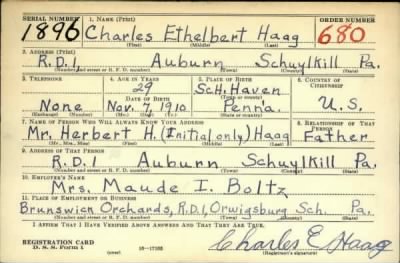 SERIAL NUMBER 1. NAME (Print) ORDER NUMBER
1896 Charles Ethelbert Haag 680
(First) (Middle) (Last)
2. ADDRESS (Print)
R.D.1 Auburn Schuylkill Pa.
(Number and street or R. F. D. number) (Town) (County) (State)
3. TELEPHONE 4. AGE IN YEARS 5. PLACE OF BIRTH 6. COUNTRY OF CITIZENSHIP
29 Sch. Haven
DATE OF BIRTH
None Nov. 7, 1910 Penna. U.S.
(Exchange) (Number) (Mo.) (Day) (Yr.) (State or country)
7. NAME OF PERSON WHO WILL ALWAYS KNOW YOUR ADDRESS 8. RELATIONSHIP OF THAT PERSON
Mr. Herbert H. (Initial only) Haag Father
(Mr., Mrs., Miss) (First) (Middle) (Last)
9. ADDRESS OF THAT PERSON
R.D.1 Auburn Schuylkill Pa.
(Number and street or R. F. D. number) (Town) (County) (State)
10. EMPLOYER'S NAME
Mrs. Maude I. Boltz
11. PLACE OF EMPLOYMENT OR BUSINESS
Brunswick Orchards, R.D.1, Orwigsburg Sch. Pa.
(Number and street or R. F. D. number) (Town) (County) (State)
I AFFIRM THAT I HAVE VERIFIED ABOVE ANSWERS AND THAT THEY ARE TRUE.
REGISTRATION CARD
D. S. S. Form 1 16-17105 Charles E. Haag
(Registrant's signature)